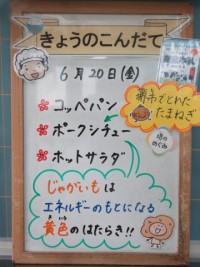 きょうのこんだて
6月20日(金)
コッペパン
ポークシチュー
ホットサラダ
堺市でとれた
たまねぎ
堺の
めぐみ
じゃがいもは
エネルギーのもとになる
黄色のはたらき!!